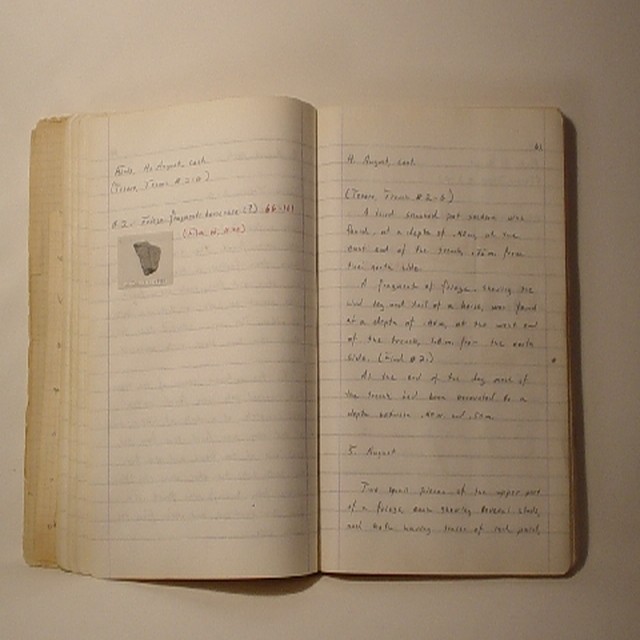 Finds, 4. August, cont.
(Tesoro, Trench # 2-6)
# 2. Frieze fragment: horse race (?) 66-161
61
4. August, cont.
(Tesoro, Trench # 2-6)
A third squared post section was
found, at a depth of .42m, at the
east end of the trench, .75m from
the north side.
A fragment of frieze, showing the
hind leg and tail of a horse, was found
at a depth of .40m, at the west end
of the trench, 1.0m from the north
side. (Find # 2.)
At the end of the day most of
the trench had been excavated to a
depth between .40m and .50m.
5. August
Two small pieces of the upper part
of a frieze, each showing several
and both having traces of red paint,